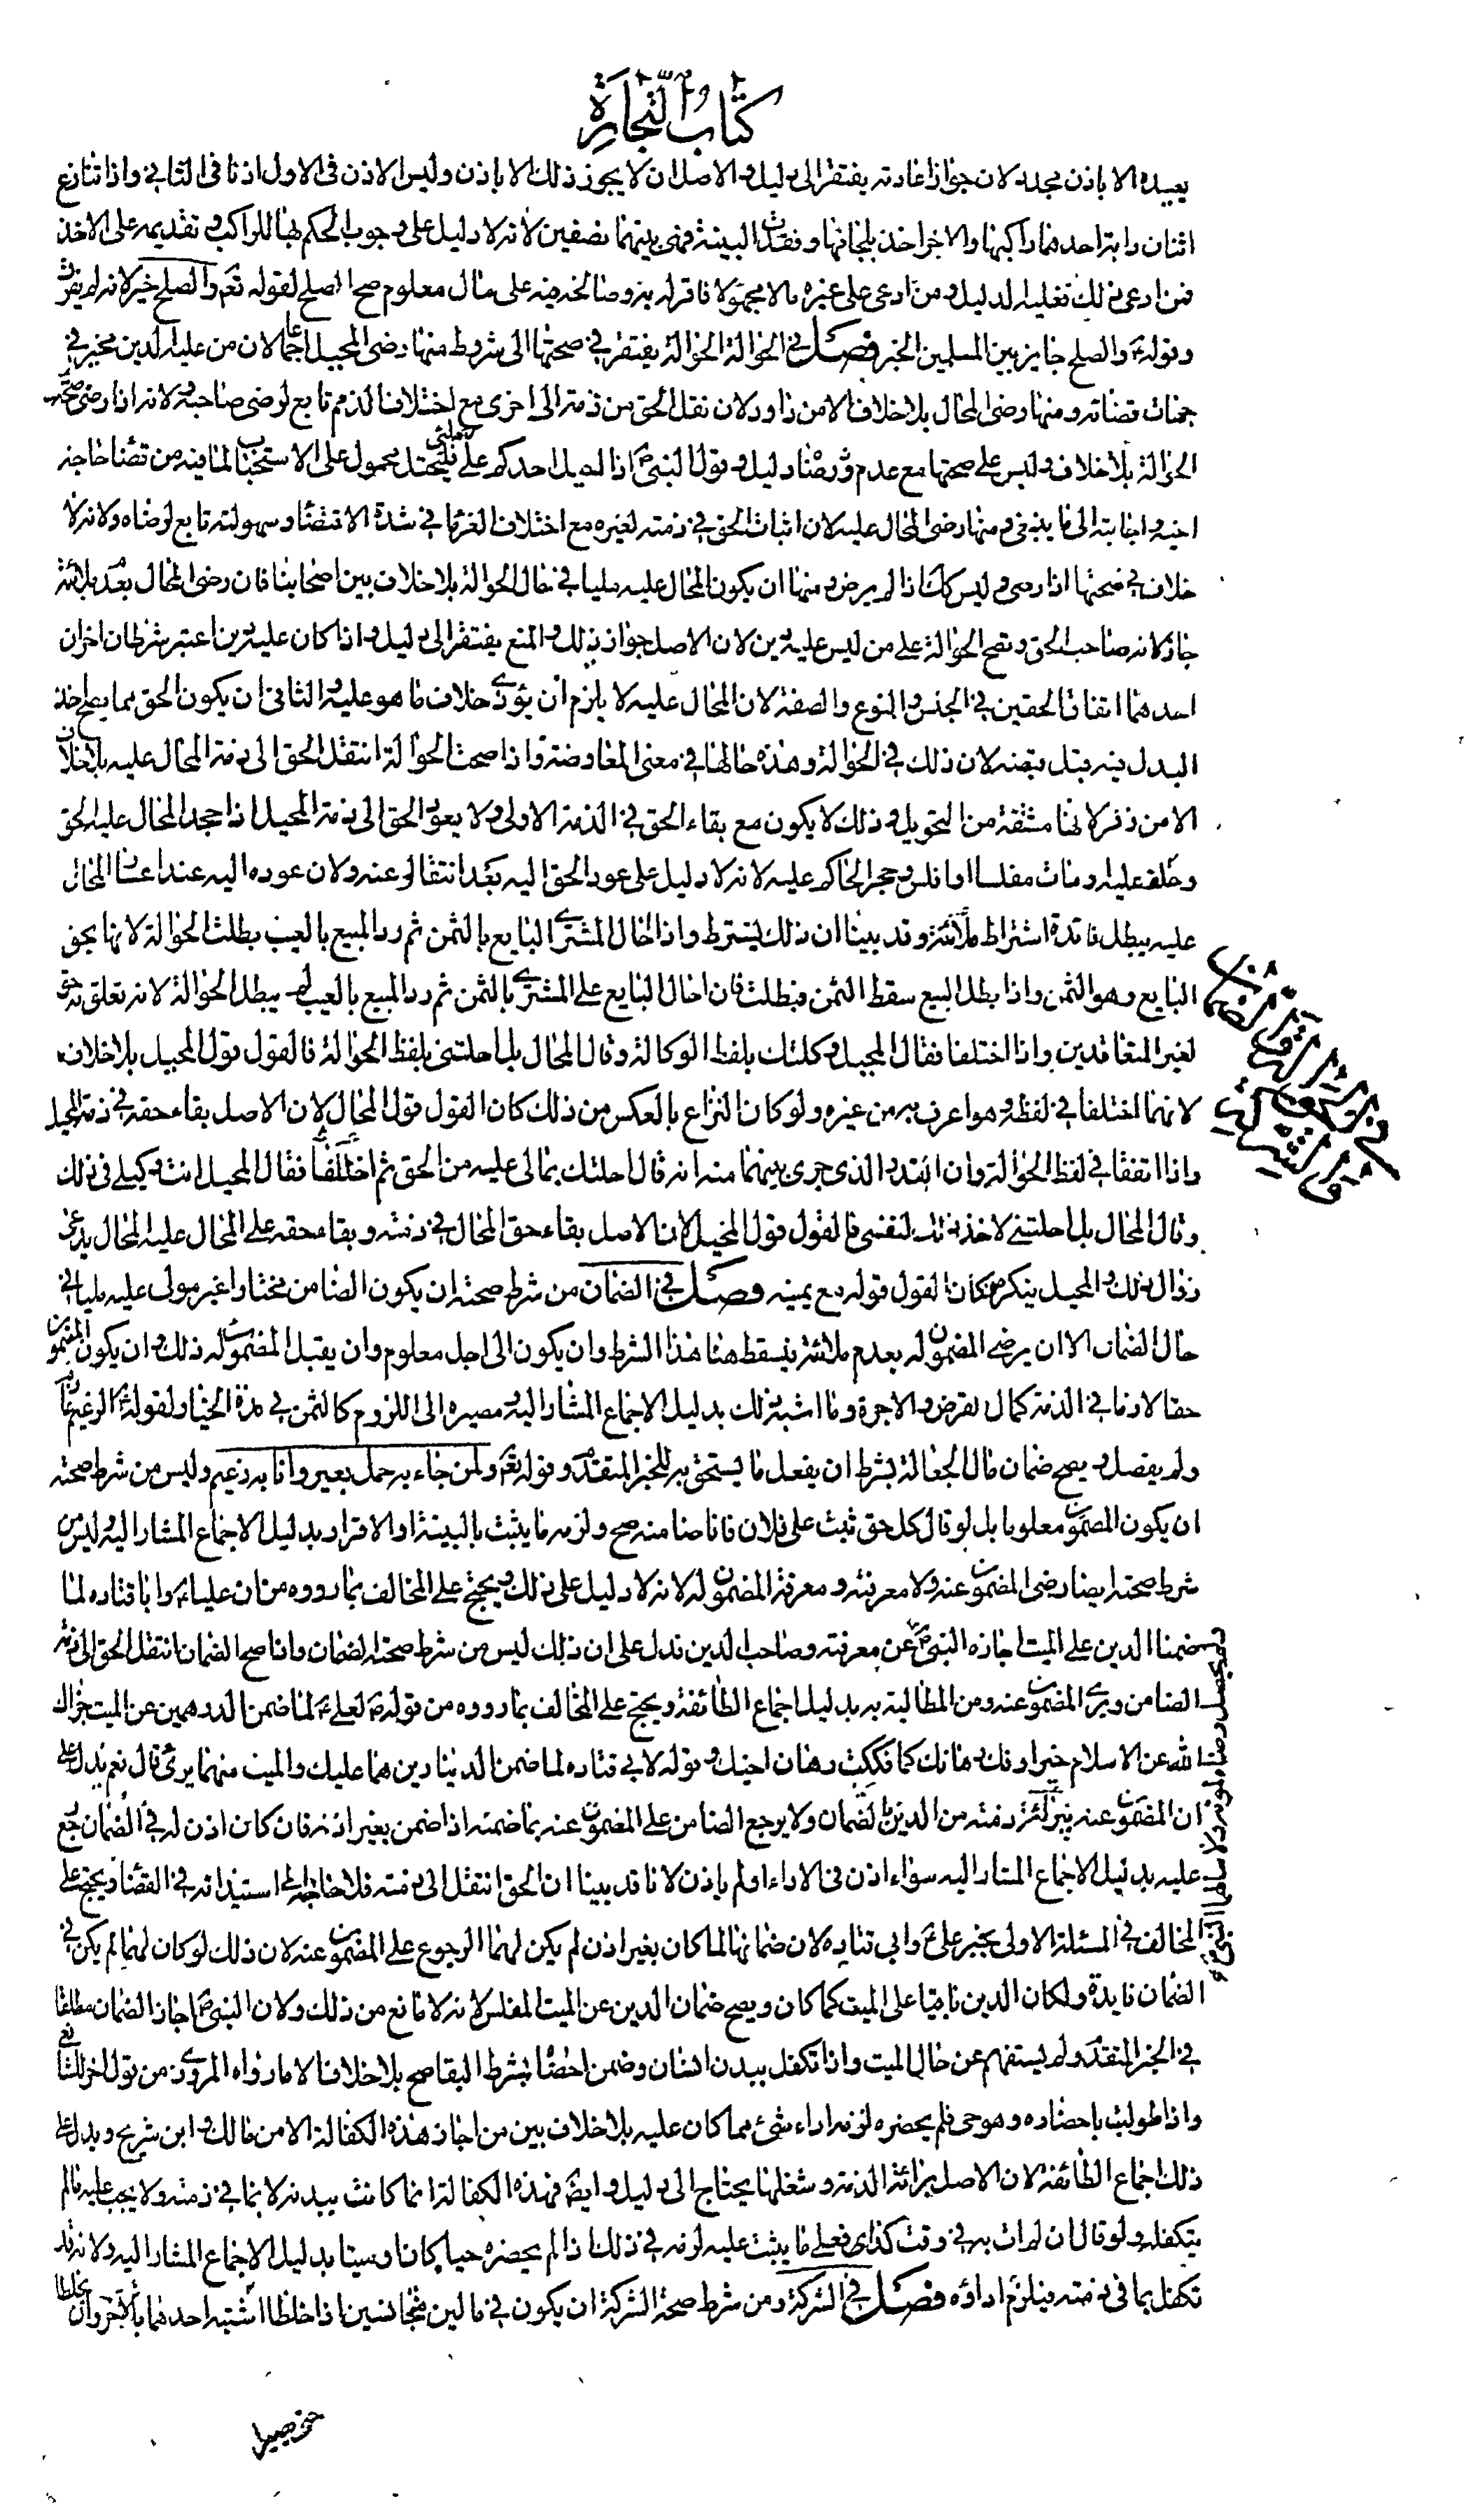 كتاب التجارة
يعيده الا باذن مجدد لان جواز اعادته يفتقر الى دليل و الاصل ان لا يجوز ذلك الا باذن وليس الاذن فى الاول اذنا فى الثانى واذا تنازع
اثنان دابة احدهما راكبها والاخر اخذ بلجامها وفقدت البينة فهى بينهما نصفين لانه لا دليل على وجوب الحكم بها للراكب و تقديمه على الاخذ
فمن ادعى ذلك فعليه الدليل و من ادعى على غيره مالا مجهولا فاقر له به وصالحه منه على مال معلوم صح الصلح لقوله تعم والصلح خير لانه لم يفرق
وقوله والصلح جايز بين المسلمين الخبر فصل فى الحوالة الحوالة يفتقر فى صحتها الى شروط منها رضى المحيل اجماعا لان من عليه الدين مخير فى
جهات قضائه ومنها رضى المحال بلا خلاف الا من داود لان نقل الحق من ذمة الى اخرى مع اختلاف الذمم تابع لرضى صاحبه و لانه اذا رضى صحت
الحوالة بلا خلاف وليس على صحتها مع عدم رضاه دليل و قول النبى ص اذا احيل احدكم على ملى فليحتل محمول على الاستحباب لما فيه من قضاء حاجة
اخيه و اجابته الى ما يبتغى و منها رضى المحال عليه لان اثبات الحق فى ذمته لغيره مع اختلاف الغرما فى شدة الاقتضاء وسهولته تابع لرضاه ولانه لا
خلاف فى صحتها اذا رضى و ليس كك اذا لم يرض و منها ان يكون المحال عليه مليا فى حال الحوالة بلا خلاف بين اصحابنا فان رضى المحال بعدم ملائته
جاز لانه صاحب الحق و تصح الحوالة على من ليس عليه دين لان الاصل جواز ذلك و المنع يفتقر الى دليل و اذا كان عليه دين اعتبر شرطان اخران
احدهما اتفاق الحقين فى الجنس و النوع والصفة لان المحال عليه لا يلزم ان يؤدى خلاف ما هو عليه و الثانى ان يكون الحق مما يصح اخذ
البدل فيه قبل قبضه لان ذلك فى الحوالة وهذه حالها فى معنى المعاوضة و اذا صحت الحوالة انتقل الحق الى ذمة المحال عليه بلا خلاف
الا من زفر لانها مشتقة من التحويل و ذلك لا يكون مع بقاء الحق فى الذمة الاولى و لا يعود الحق الى ذمة المحيل اذا جحد المحال عليه الحق
وحلف عليه او مات مفلسا او افلس و حجر الحاكم عليه لانه لا دليل على عود الحق اليه بعد انتقاله عنه ولان عوده اليه عند اعسار المحال
عليه يبطل فائدة اشتراط ملائته وقد بينا ان ذلك يشترط واذا احال المشترى البايع بالثمن ثم رد المبيع بالعيب بطلت الحوالة لانها بحق
البايع وهو الثمن واذا بطل البيع سقط الثمن فبطلت فان احال البايع على المشترى بالثمن ثم رد المبيع بالعيب لم يبطل الحوالة لانه تعلق به حق
لغير المتعاقدين واذا اختلفا فقال المحيل وكلتك بلفظ الوكالة وقال المحال بل احلتنى بلفظ الحوالة فالقول قول المحيل بلا خلاف
لانهما اختلفا فى لفظه و هو اعرف به من غيره ولو كان النزاع بالعكس من ذلك كان القول قول المحال لان الاصل بقاء حقه فى ذمة المحيل
واذا اتفقا فى لفظ الحوالة وان القدر الذى جرى بينهما منه انه قال احلتك بمالى عليه من الحق ثم اختلفا فقال المحيل انت وكيلى فى ذلك
وقال المحال بل احلتنى لاخذ ذلك لنفسى فالقول قول المحيل لان الاصل بقاء حق المحال فى ذمته و بقاء حقه على المحال عليه و المحال يدعى
زوال ذلك و المحيل ينكره فكان القول قوله مع يمينه فصل فى الضمان من شرط صحته ان يكون الضامن مختارا غير مولى عليه مليا فى
حال الضمان الا ان يرضى المضمون له بعدم ملائته فيسقط هنا هذا الشرط وان يكون الى اجل معلوم وان يقبل المضمون له ذلك و ان يكون المضمون
حقا لازما فى الذمة كمال القرض و الاجرة وما اشبه ذلك بدليل الاجماع المشار اليه و مصيره الى اللزوم كالثمن فى مدة الخيار لقوله الزعيم غارم
ولم يفصل و يصح ضمان مال الجعالة بشرط ان يفعل ما يستحق به للخبر المتقدم و قوله تعم ولمن جاء به حمل بعير وانا به زعيم وليس من شرط صحته
ان يكون المضمون معلوما بل لو قال كل حق ثبت على فلان فانا ضامنه صح ولزمه ما يثبت بالبينة او الاقرار بدليل الاجماع المشار اليه و ليس من
شرط صحته ايضا رضى المضمون عنه و لا معرفته و معرفة المضمون له لانه لا دليل على ذلك و يحتج على المخالف بما رووه من ان عليا ع وابا قتادة لما
ضمنا الدين على الميت اجازه النبى ص عن معرفته وصاحب الدين فدل على ان ذلك ليس من شرط صحة الضمان واذا صح الضمان انتقل الحق الى ذمة
الضامن وبرئ المضمون عنه ومن المطالبة به بدليل اجماع الطائفة و يحتج على المخالف بما رووه من قوله ص لعلى ع لما ضمن الدرهمين عن الميت جزاك
الله عن الاسلام خيرا و فك رهانك كما فككت رهان اخيك و قوله لابى قتادة لما ضمن الدينارين هما عليك والميت منهما برئ قال نعم فدل على
ان المضمون عنه يبرأ ذمته من الدين بالضمان ولا يرجع الضامن على المضمون عنه بما ضمنه اذا ضمن بغير اذنه فان كان اذن له فى الضمان رجع
عليه بدليل الاجماع المشار اليه سواء اذن فى الاداء او لم ياذن لانا قد بينا ان الحق انتقل الى ذمته فلا حاجة الى استيذانه فى القضاء و يحتج على
المخالف فى المسئلة الاولى بخبر على ع وابى قتادة لان ضمانهما لما كان بغير اذن لم يكن لهما الرجوع على المضمون عنه لان ذلك لو كان لهما لم يكن فى
الضمان فايدة ولكان الدين باقيا على الميت كما كان ويصح ضمان الدين عن الميت المفلس لانه لا مانع من ذلك ولان النبى ص اجاز الضمان مطلقا
فى الخبر المتقدم ولم يستفهم عن حال الميت واذا تكفل ببدن انسان وضمن احضاره بشرط البقا صح بلا خلاف الا ما رواه المروزى من قول اخر للشافعى
واذا طولب باحضاره وهو حى فلم يحضره لزمه اداء شئ مما كان عليه بلا خلاف بين من اجاز هذه الكفالة الا من مالك و ابن شريح و يدل على
ذلك اجماع الطائفة لان الاصل برائة الذمة و شغلها يحتاج الى دليل و ايضا فهذه الكفالة انما كانت ببدنه لا بما فى ذمته و لا يجب عليه ما لم
يتكفله و لو قال ان لم ات به فى وقت كذا فعلى ما يثبت عليه لزمه فى ذلك اذا لم يحضره حيا كان او ميتا بدليل الاجماع المشار اليه و لانه قد
تكفل بما فى ذمته فيلزم اداؤه فصل فى الشركة و من شرط صحة الشركة ان يكون فى مالين متجانسين اذا خلطا اشتبه احدهما بالاخر وان يخلطا